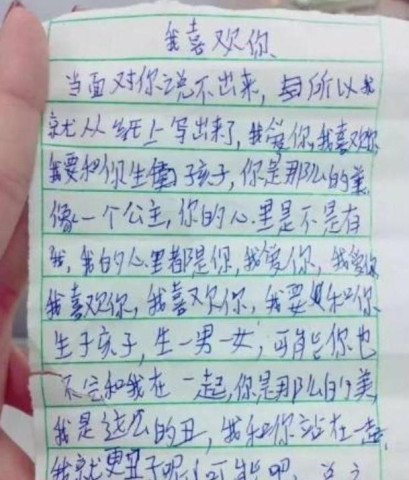 我喜欢你
当面对你说不出来，所以我
就从纸上写出来了，我爱你，我喜欢你
我要和你生子孩子，你是那么的美
像一个公主，你的心里是不是有
我，我的心里都是你，我爱你，我爱你
我喜欢你，我喜欢你，我要和你
生子孩子，生一男一女，可能你也
不会和我在一起，你是那么的美
我是这么的丑，我和你站在一起
我就更丑了呢，可能吧